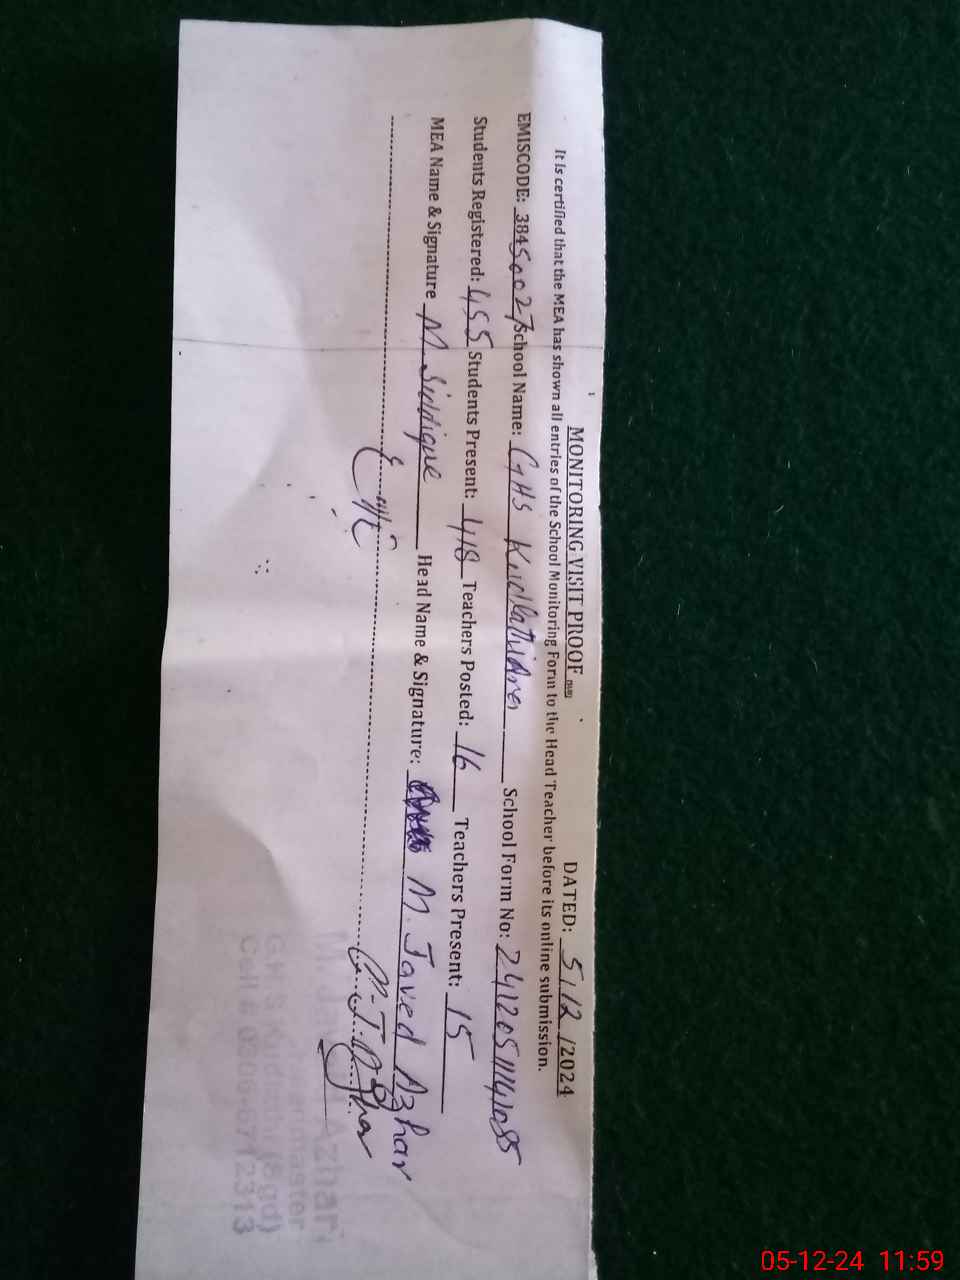 MONITORING VISIT PROOF DATED: 5/12/2024
It is certified that the MEA has shown all entries of the School Monitoring Form to the Head Teacher before its online submission.
EMISCODE: 38450027 School Name: GHS School Form No:
Students Registered: 455 Students Present: 418 Teachers Posted: 16 Teachers Present: 15
MEA Name & Signature M. Siddique Head Name & Signature: M. Javed Azhar
M. J. Azhar
Azhar
master
(Sgd)
Cell #
05-12-24 11:59